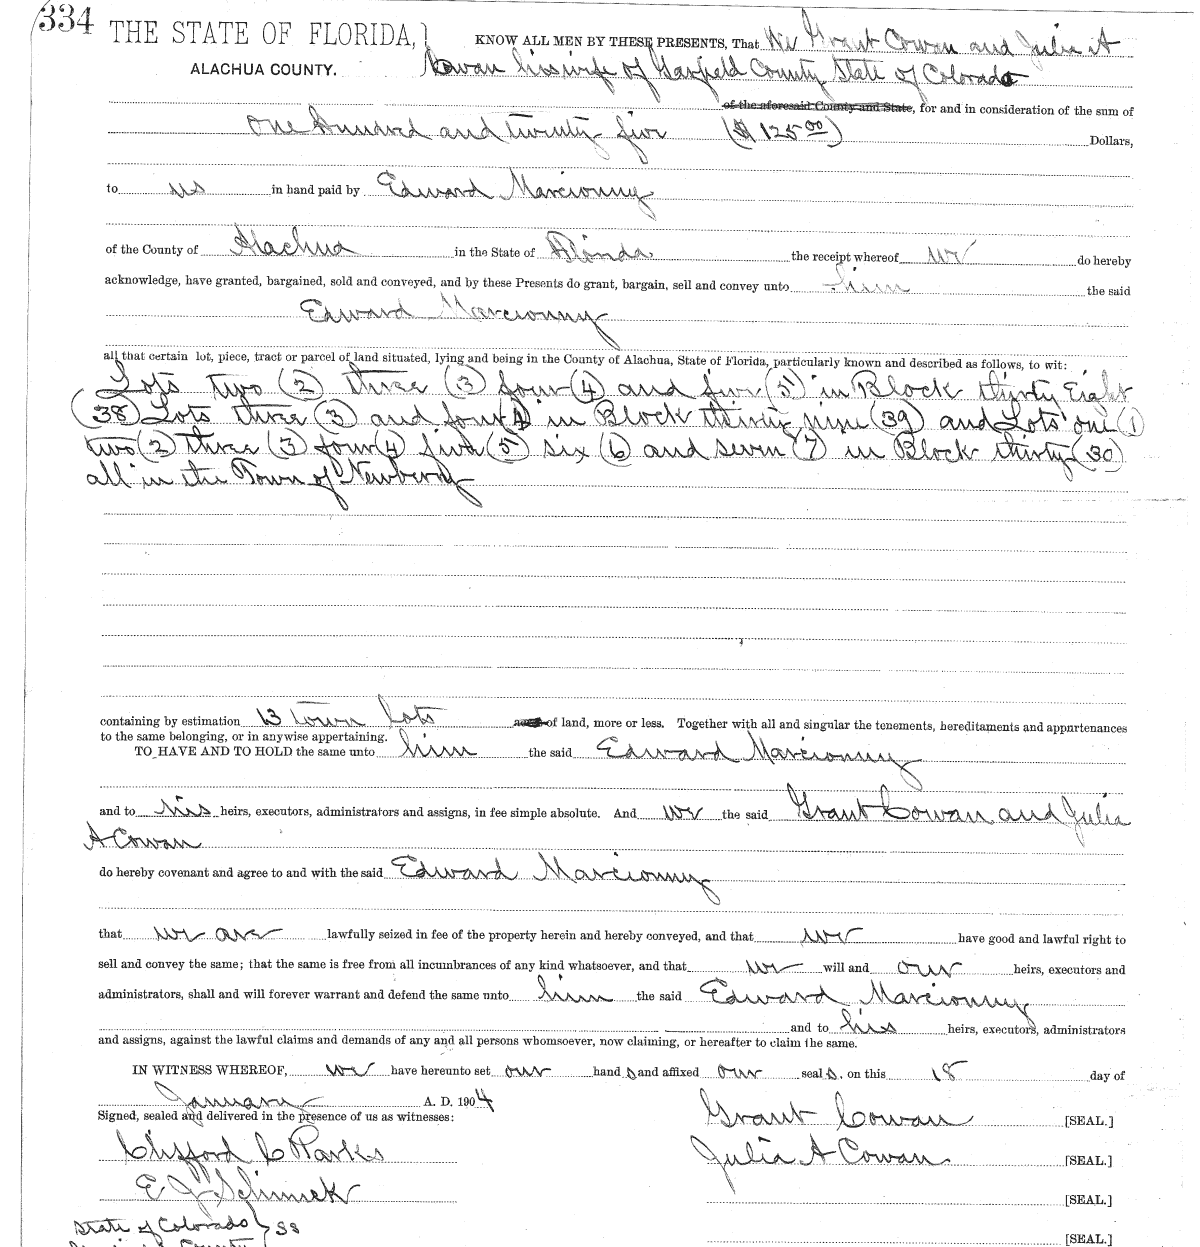 334 THE STATE OF FLORIDA,} KNOW ALL MEN BY THESE PRESENTS, That We Grant Cowan and Julia A
ALACHUA COUNTY. Cowan his wife of Garfield County State of Colorado
of the aforesaid County and State, for and in consideration of the sum of
One Hundred and twenty five ($ 125 00) Dollars,
to us in hand paid by Edward Marcionny
of the County of Alachua in the State of Florida the receipt whereof we do hereby
acknowledge, have granted, bargained, sold and conveyed, and by these Presents do grant, bargain, sell and convey unto him the said
Edward Marcionny
all that certain lot, piece, tract or parcel of land situated, lying and being in the County of Alachua, State of Florida, particularly known and described as follows, to wit:
Lots two (2) three (3) four (4) and five (5) in Block thirty Eight
(38) Lots three (3) and four 4 in Block thirty nine (39) and Lots one (1)
two (2) three (3) four (4) five (5) six (6) and seven (7) in Block thirty (30)
all in the Town of Newberry
containing by estimation 13 Town Lots of land, more or less. Together with all and singular the tenements, hereditaments and appurtenances
to the same belonging, or in anywise appertaining.
TO HAVE AND TO HOLD the same unto him the said Edward Marcionny
and to his heirs, executors, administrators and assigns, in fee simple absolute. And we the said Grant Cowan and Julia
A Cowan
do hereby covenant and agree to and with the said Edward Marcionny
that we are lawfully seized in fee of the property herein and hereby conveyed, and that we have good and lawful right to
sell and convey the same; that the same is free from all incumbrances of any kind whatsoever, and that we will and our heirs, executors and
administrators, shall and will forever warrant and defend the same unto him the said Edward Marcionny
and to his heirs, executors, administrators
and assigns, against the lawful claims and demands of any and all persons whomsoever, now claiming, or hereafter to claim the same.
IN WITNESS WHEREOF, we have hereunto set our hand s and affixed our seal s. on this 18 day of
January A. D. 1904
Signed, sealed and delivered in the presence of us as witnesses: Grant Cowan [SEAL.]
Clifford C Parks Julia A Cowan [SEAL.]
E J Schmuck [SEAL.]
State of Colorado } SS [SEAL.]